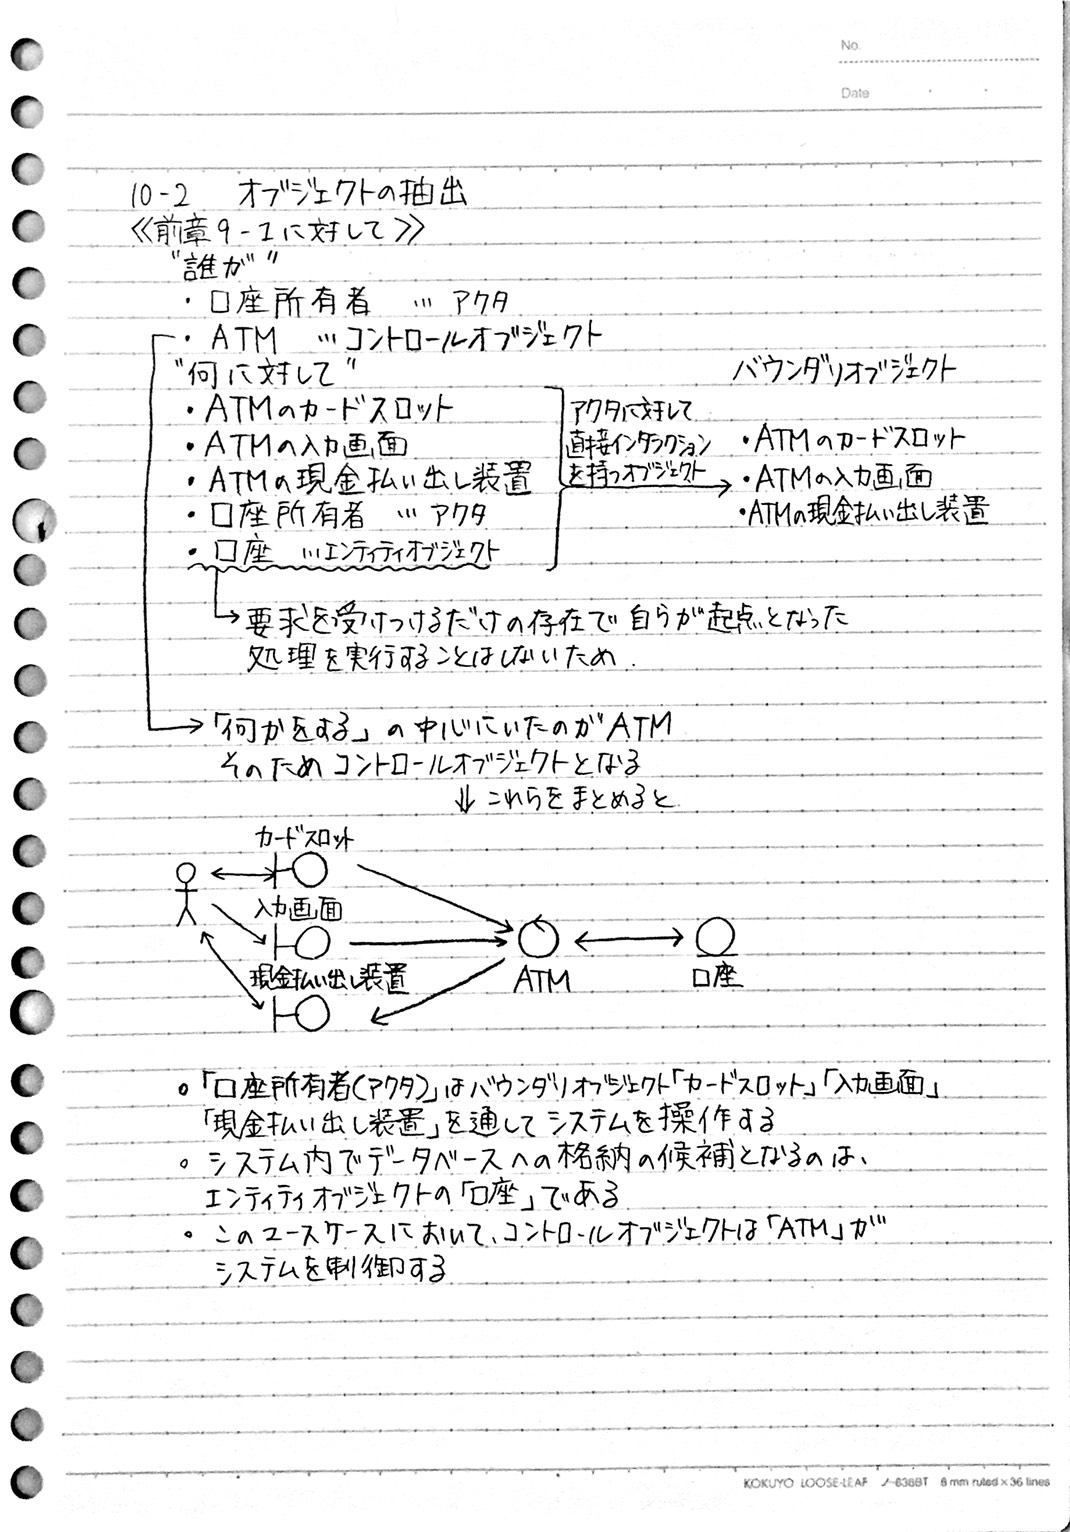 No.
Date
10-2 オブジェクトの抽出
≪前章9-1に対して≫
"誰が"
・口座所有者 … アクタ
・ATM … コントロールオブジェクト
"何に対して"
バウンダリオブジェクト
・ATMのカードスロット
・ATMの入力画面
・ATMの現金払い出し装置
・口座所有者 … アクタ
・口座 … エンティティオブジェクト
アクタに対して
直接インタラクション
を持つオブジェクト
・ATMのカードスロット
・ATMの入力画面
・ATMの現金払い出し装置
要求を受けつけるだけの存在で自らが起点となった
処理を実行することはしないため.
「何かをする」の中心にいたのがATM
そのためコントロールオブジェクトとなる
⇓ これらをまとめると
カードスロット
入力画面
現金払い出し装置
ATM
口座
○「口座所有者(アクタ)」はバウンダリオブジェクト「カードスロット」「入力画面」
「現金払い出し装置」を通してシステムを操作する
○ システム内でデータベースへの格納の候補となるのは、
エンティティオブジェクトの「口座」である
○ このユースケースにおいて、コントロールオブジェクトは「ATM」が
システムを制御する
KOKUYO LOOSE-LEAF ノ-836BT 6 mm ruled×36 lines